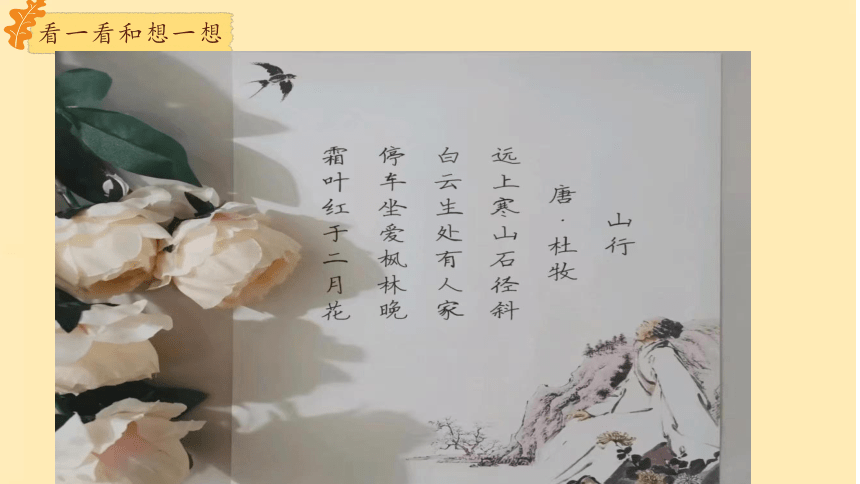 看一看和想一想
山行
唐·杜牧
远上寒山石径斜
白云生处有人家
停车坐爱枫林晚
霜叶红于二月花